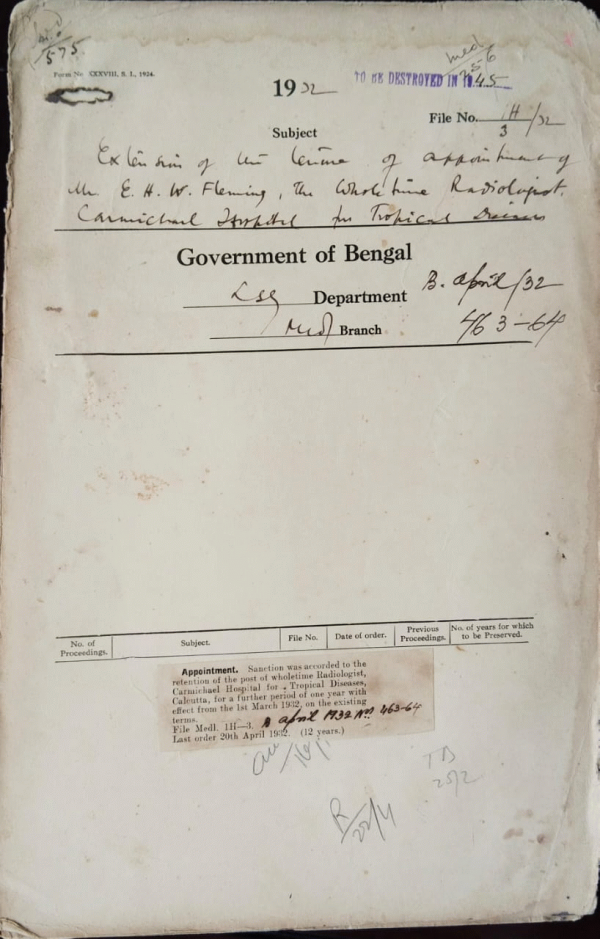 575
Form No. XXXVIII, S. I., 1924.
med
556
1932
TO BE DESTROYED IN 1945
File No. 1H/3/32
Subject
Extension of the tenure of appointment of
Mr. E. H. W. Fleming, the Wholetime Radiologist.
Carmichael Hospital for Tropical Diseases
Government of Bengal
LSG Department B. April/32
Medl Branch 463-64
No. of Proceedings. Subject. File No. Date of order. Previous Proceedings. No. of years for which to be Preserved.
Appointment. Sanction was accorded to the
retention of the post of wholetime Radiologist,
Carmichael Hospital for Tropical Diseases,
Calcutta, for a further period of one year with
effect from the 1st March 1932, on the existing
terms.
File Medl. 1H—3. A April 1932 Nos 463-64
Last order 20th April 1932. (12 years.)
TB
25/2
R
22/4